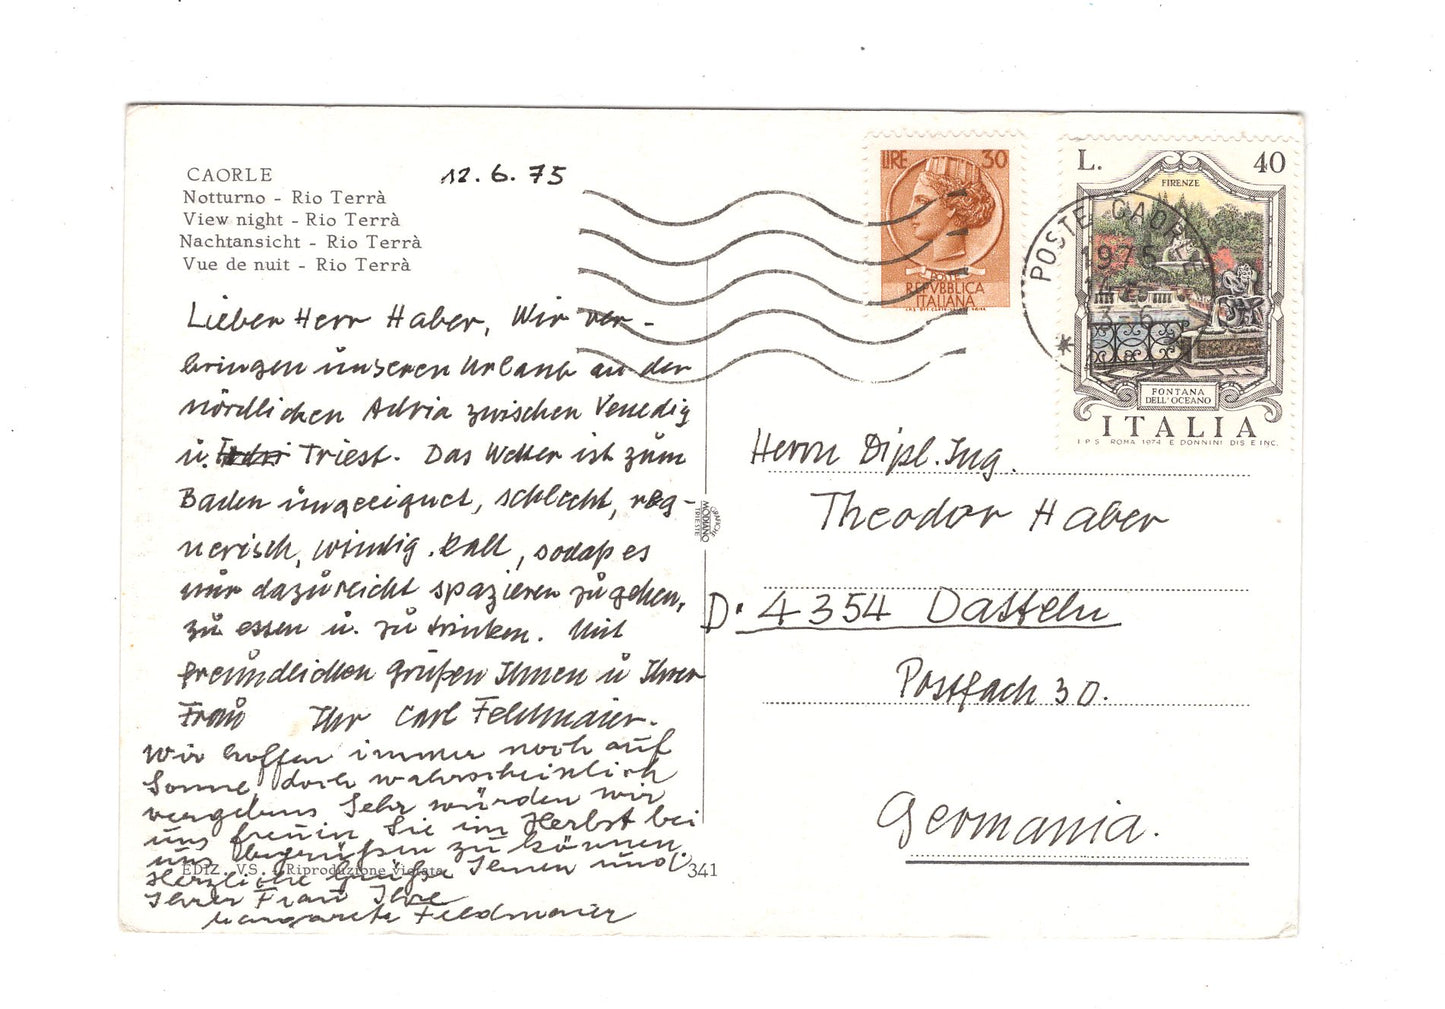 CAORLE
Notturno - Rio Terrà
View night - Rio Terrà
Nachtansicht - Rio Terrà
Vue de nuit - Rio Terrà
12.6.75
Lieber Herr Haber, Wir ver-
bringen unseren Urlaub an der
nördlichen Adria zwischen Venedig
u. Triest. Das Wetter ist zum
Baden ungeeignet, schlecht, reg-
nerisch, windig. kalt, sodaß es
nur dazu reicht spazieren zu gehen,
zu essen u. zu trinken. Mit
freundlichen Grüßen Ihnen u Ihrer
Frau Ihr Carl Feldmaier.
Wir hoffen immer noch auf
Sonne doch wahrscheinlich
vergebens Sehr würden wir
uns freuen Sie im Herbst bei
uns begrüßen zu können.
Herzliche Grüße Ihnen und
Ihrer Frau Ihre
Margarete Feldmaier
EDIZ. V.S. - Riproduzione vietata
341
GRAFICHE
MODIANO
TRIESTE
LIRE 30
POSTE
REPVBBLICA
ITALIANA
POSTE CAORLE
1975
L. 40
FIRENZE
FONTANA
DELL'OCEANO
ITALIA
I.P.S. ROMA 1974 E DONNINI DIS. E INC.
Herrn Dipl. Ing.
Theodor Haber
D. 4354 Datteln
Postfach 30.
Germania.